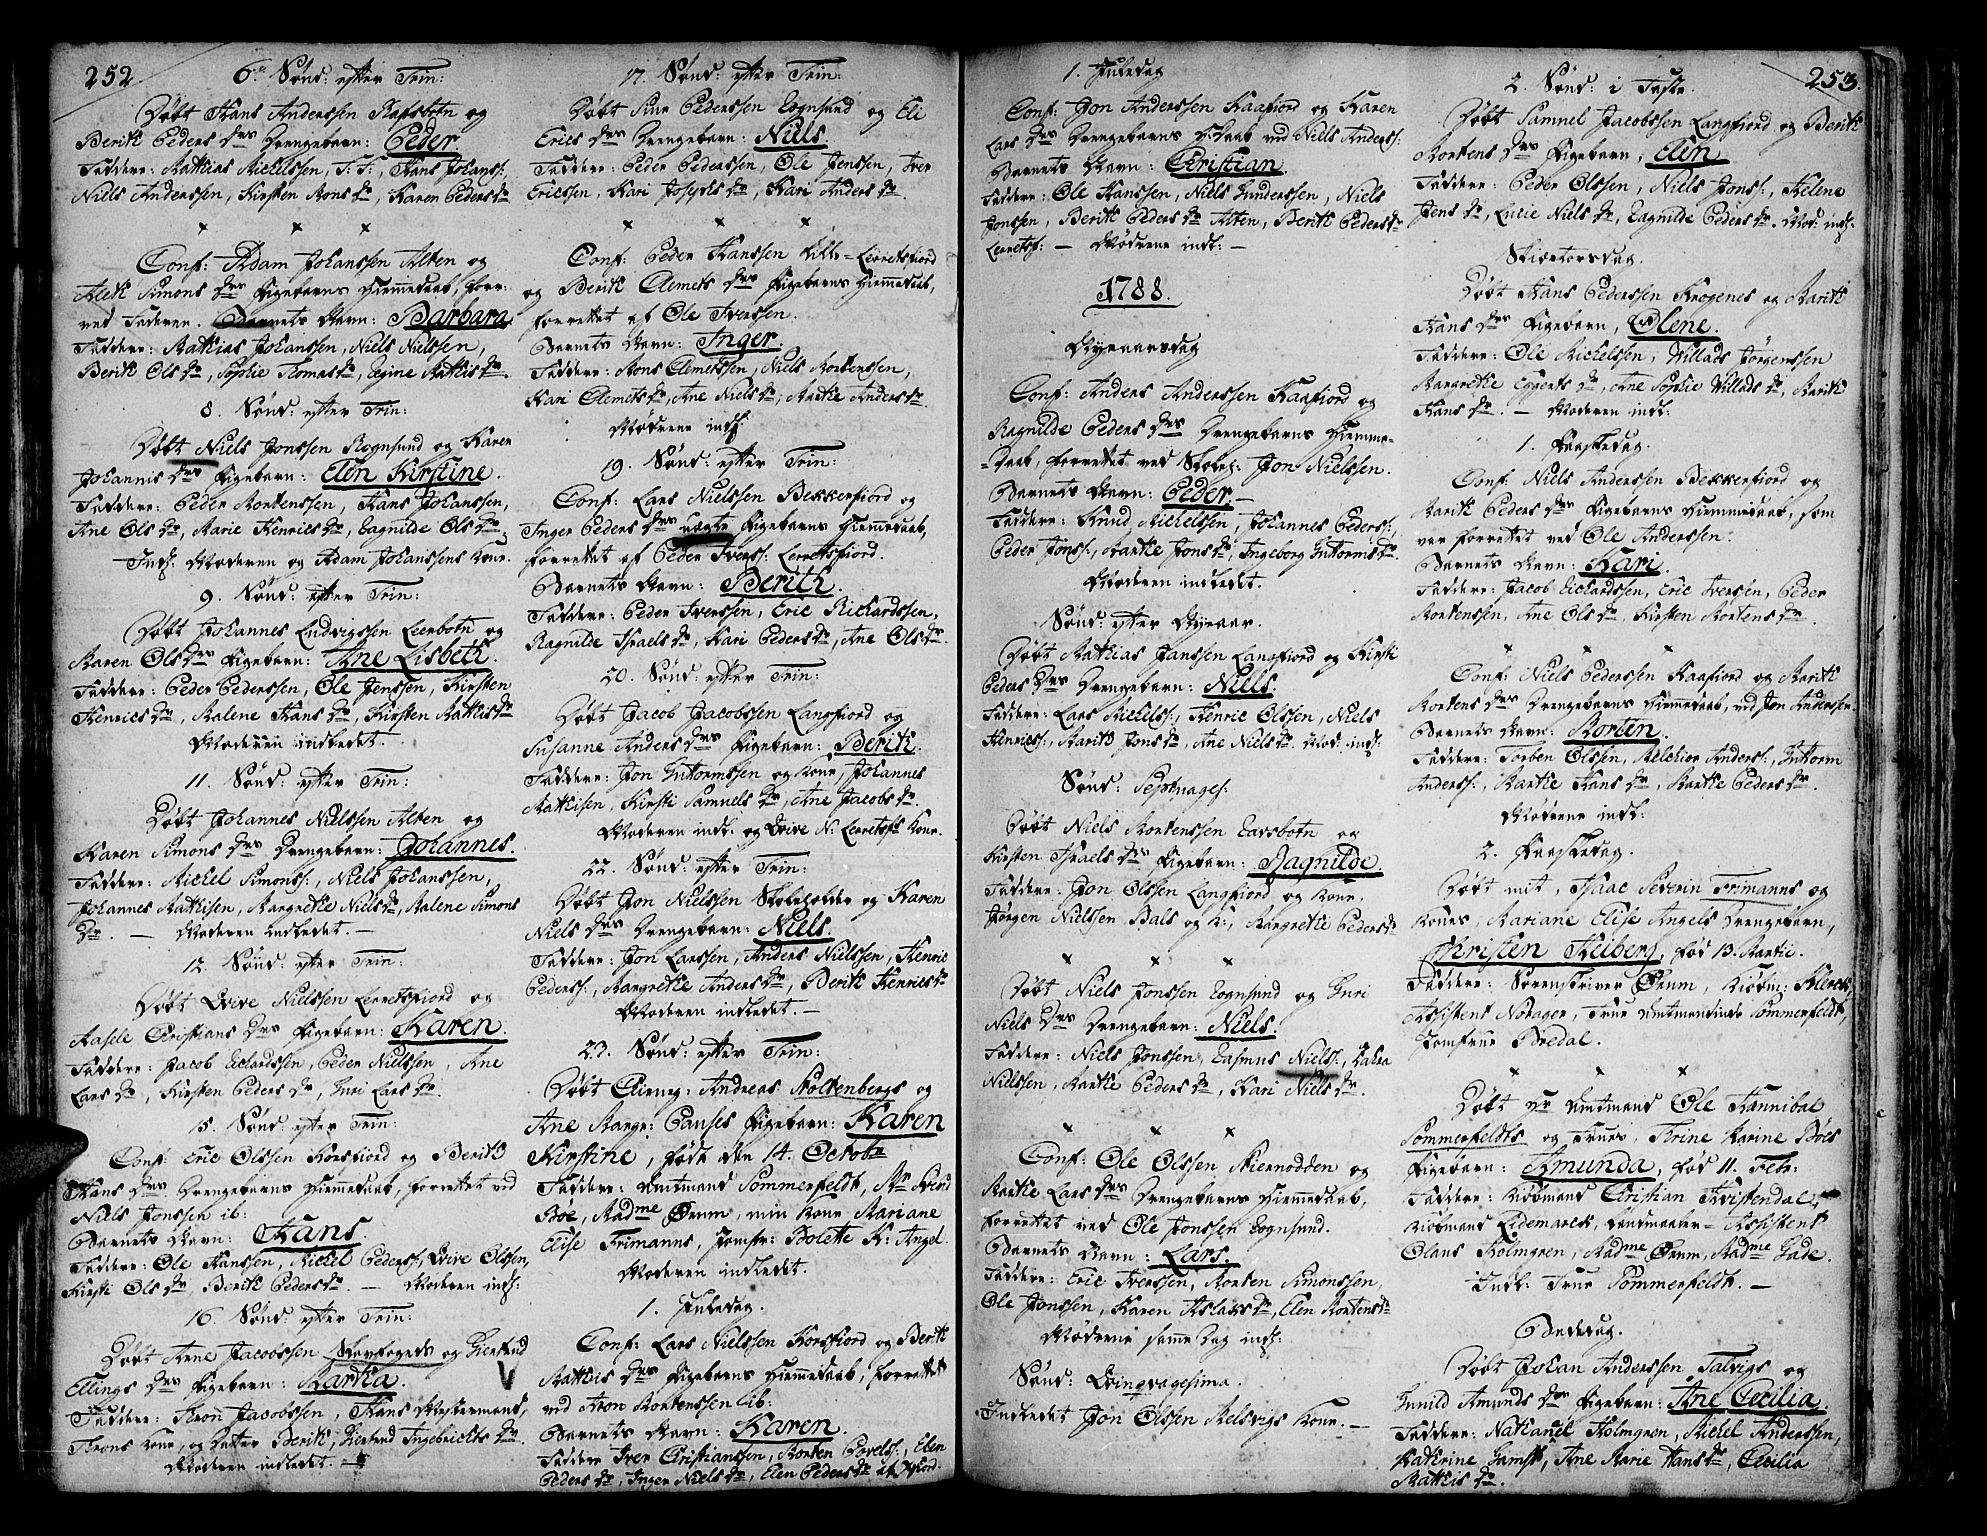 252
6te Sønd: efter Trin:
Døbt Hans Anderssen Rafsbotn og
Berith Peders Drs Drengebarn: Peder
Faddere: Mathias Michelssen, S: S:, Hans Johans:,
Niels Anderssen, Kirsten Mons Dr, Karen Peders Dr
Conf: Adam Johanssen Alten og
Aleth Simons Drs Pigebarns Hiemmedaab, forr:
ved Faderen. Barnets Navn: Barbara
Faddere: Mathias Johanssen, Niels Nielssen,
Berith Ols Dr, Sophie Thomas Dr, Egine Mathis Dr.
8. Sønd: efter Trin:
Døbt Niels Jonssen Rognsund og Karen
Johannis Drs Pigebarn: Elen Kirstine.
Faddere: Peder Mortenssen, Hans Johanssen,
Ane Ols Dr, Marie Henrics Dr, Ragnilde Ols Dr.
Indl: Moderen og Adam Johanssens Kone.
9. Sønd: efter Trin:
Døbt Johannes Ludvigssen Leerbotn og
Maren Ols Drs Pigebarn: Ane Lisbeth.
Faddere: Peder Pederssen, Ole Jenssen, Kirsten
Henrics Dr, Malene Hans Dr, Kirsten Mathis Dr
Moderen indledet.
11. Sønd: efter Trin:
Døbt Johannes Nielssen Alten og
Karen Simons Drs Drengebarn: Johannes.
Faddere: Michel Simonss:, Niels Johanssen,
Johannes Mathisen, Margrethe Niels Dr, Malene Simons
Dr. — Moderen indledet. —
12. Sønd: efter Trin:
Døbt Qvive Nielssen Lerretsfiord og
Aasele Christians Drs Pigebarn: Karen.
Faddere: Jacob Richardssen, Peder Nielssen, Ane
Lars Dr, Kirsten Peders Dr, Guri Lars Dr.
15. Sønd: efter Trin:
Conf: Eric Olssen Korsfiord og Berith
Hans Drs Drengebarns Hiemmedaab, forrettet ved
Niels Jonssen ib:
Barnets Navn: Hans.
Faddere: Ole Hanssen, Michel Pederss:, Qvive Olssen,
Kirsti Ols Dr, Berith Peders Dr. — Moderen indl:
16. Sønd: efter Trin:
Døbt Arne Jacobssen Skovfogeds og Giertrud
Ellings Drs Pigebarn: Martha.
Faddere: Thron Jacobssen, Hans Westermand,
Throns Kone, og Datter Berith, Giertrud Ingebrichts Dr.
Moderen indledet. —
17. Sønd: efter Trin:
Døbt Siur Pederssen Rognsund og Eli
Erics Drs Drengebarn: Niels
Faddere: Peder Pederssen, Ole Jenssen, Iver
Ericssen, Kari Josephs Dr, Kari Anders Dr.
Conf: Peder Hanssen Lille-Lerretsfiord
og Berith Clemets Drs Pigebarns Hiemmedaab,
forrettet af Ole Iverssen.
Barnets Navn: Inger.
Faddere: Mons Clemetssen, Niels Mortenssen,
Mari Clemets Dr, Ane Niels Dr, Marthe Anders Dr.
Mødrene indl:
19. Sønd: efter Trin:
Conf: Lars Nielssen Bekkerfiord og
Inger Peders Drs uægte Pigebarns Hiemmedaab,
forrettet af Peder Iverss: Lerretsfiord.
Barnets Navn: Berith.
Faddere: Peder Iverssen, Eric Richardssen,
Ragnilde Israels Dr, Kari Peders Dr, Ane Ols Dr.
20. Sønd: efter Trin:
Døbt Jacob Jacobssen Langfiord og
Susanne Anders Drs Pigebarn: Berith.
Faddere: Jon Guttormssen og Kone, Johannes
Mathisen, Kirsti Samuels Dr, Ane Jacobs Dr.
Moderen indl: og Qvive N: Lerretsfs Kone.
22. Sønd: efter Trin:
Døbt Jon Nielssen Skoleholder og Karen
Niels Drs Drengebarn: Niels.
Faddere: Jon Larssen, Anders Nielssen, Henric
Pederss:, Margrethe Anders Dr, Berith Henrics Dr
Moderen indledet. —
23. Sønd: efter Trin:
Døbt Chirurg: Andreas Stoltenbergs og
Ane Margr: Pauses Pigebarn: Karen
Kirstine, født den 14. Octobr
Faddere: Amtmand Sommerfeldt, Mr
Boe, Madme Ørum, min Kone Mariane
Elise Frimanns, Jomfr: Bolette K: Angel.
Moderen indledet.
1. Juledag.
Conf: Lars Nielssen Korsfiord og Berith
Mathis Drs Pigebarns Hiemmedaab, forrettet
ved Aron Mortenssen ib:
Barnets Navn: Karen.
Faddere Iver Christianssen, Morten Povelss:, Elen
Peders Dr, Inger Niels Dr, Elen Peders Dr af
1. Juledag
Conf: Jon Anderssen Kaafiord og Karen
Lars Drs Drengebarns HDaab ved Niels Anderss:
Barnets Navn: Christian.
Faddere: Ole Hanssen, Niels Gunderssen, Niels
Jonssen, Berith Peders Dr Alten, Berith Peders Dr
Lerretsf: — Mødrene indl: —
1788.
Nyeaarsdag
Conf: Anders Anderssen Kaafiord og
Ragnilde Peders Drs Drengebarns Hiemme-
-Daab, forrettet ved Skoleh: Jon Nielssen.
Barnets Navn: Peder. —
Faddere: Knud Michelssen, Johannes Pederss:,
Peder Jonss:, Marthe Jons Dr, Ingeborg Guttorms Dr.
Moderen indledet.
Sønd: efter Nyeaar.
Døbt Mathias Janssen Langfiord og Kirsti
Peders Drs Drengebarn: Niels.
Faddere: Lars Michelss:, Henric Olssen, Niels
Henricss:, Marith Jons Dr, Ane Niels Dr. Mod: indl:
Sønd: Septuages:
Døbt Niels Mortenssen Ravsbotn og
Kirsten Israels Drs Pigebarn: Ragnilde.
Faddere: Jon Olssen Langfiord og Kone,
Jørgen Nielssen Bals og K:, Margrethe Peders Dr
Døbt Niels Jonssen Rognsund og Guri
Niels Drs Drengebarn: Niels.
Faddere: Niels Jonssen, Rasmus Nielss:,
Nielssen, Marthe Peders Dr, Kari Niels Dr.
Conf: Ole Olssen Stiernodden og
Marthe Lars Drs Drengebarns Hiemmedaab,
forrettet ved Ole Jonssen Rognsund.
Barnets Navn: Lars.
Faddere: Eric Iverssen, Morten Simonssen,
Ole Jonssen, Karen Aslaks Dr, Elen Mortens Dr
Mødrene samme Dag indl:
Sønd: Qvinqvagesima.
Indledet Jon Olssen Melsvigs Kone. —
253.
2. Sønd: i Faste.
Døbt Samuel Jacobssen Langfiord og Berith
Mortens Drs Pigebarn, Elen.
Faddere: Peder Olssen, Niels Jonss:, Helene
Jens Dr, Lucie Niels Dr, Ragnilde Peders Dr. Mod: indl:
Skiærtorsdag.
Døbt Hans Pederssen Krognes og Marith
Hans Drs Pigebarn, Olene.
Faddere: Ole Michelssen, Villads Jørgenssen
Margrethe Eggerts Dr, Ane Sophie Villads Dr, Marith
Hans Dr. — Moderen indl:
1. Paaskedag.
Conf: Niels Anderssen Bekkerfiord og
Marith Peders Drs Pigebarns Hiemmedaab, som
var forrettet ved Ole Anderssen.
Barnets Navn: Kari.
Faddere: Jacob Richardssen, Eric Iverssen, Peder
Mortenssen, Ane Ols Dr, Kirsten Mortens Dr.
Conf: Niels Pederssen Kaafiord og Marith
Mortens Drs Drengebarns Hiemmedaab, ved Jon Anderssen.
Barnets Navn: Morten.
Faddere: Torben Olssen, Melchior Anderss:, Guttorm
Anderss:, Marthe Hans Dr, Marthe Peders Dr.
Mødrene indl:
2. Paaskedag.
Døbt mit, Isaac Severin Frimanns og
Kones, Mariane Elise Angels Drengebarn,
Christen Heiberg, fød 13. Martii.
Faddere: Sorenskriver Ørum, Kiøbm: Klerck,
Assistent Norager, Frue Amtmandinde Sommerfeldt,
Jomfrue Bredal.
Døbt Hr Amtmand Ole Hannibal
Sommerfeldts og Frues, Thrine Karine Böes
Pigebarn: Amunda, fød 11. Febr:
Faddere: Kiøbmand Christian Qvistendal,
Kiøbmand Ridemarck, Assistent
Olaus Holmgren, Madme Ørum, Madme Gade.
Indl: Frue Sommerfeldt. —
Bededag.
Døbt Johan Anderssen Talvigs og
Gunild Amunds Drs Pigebarn: Ane Cecilia.
Faddere: Nathanel Holmgren, Michel Anderssen,
Kathrine Gamst, Ane Marie Hans Dr, Cecilia
Mathis Dr.